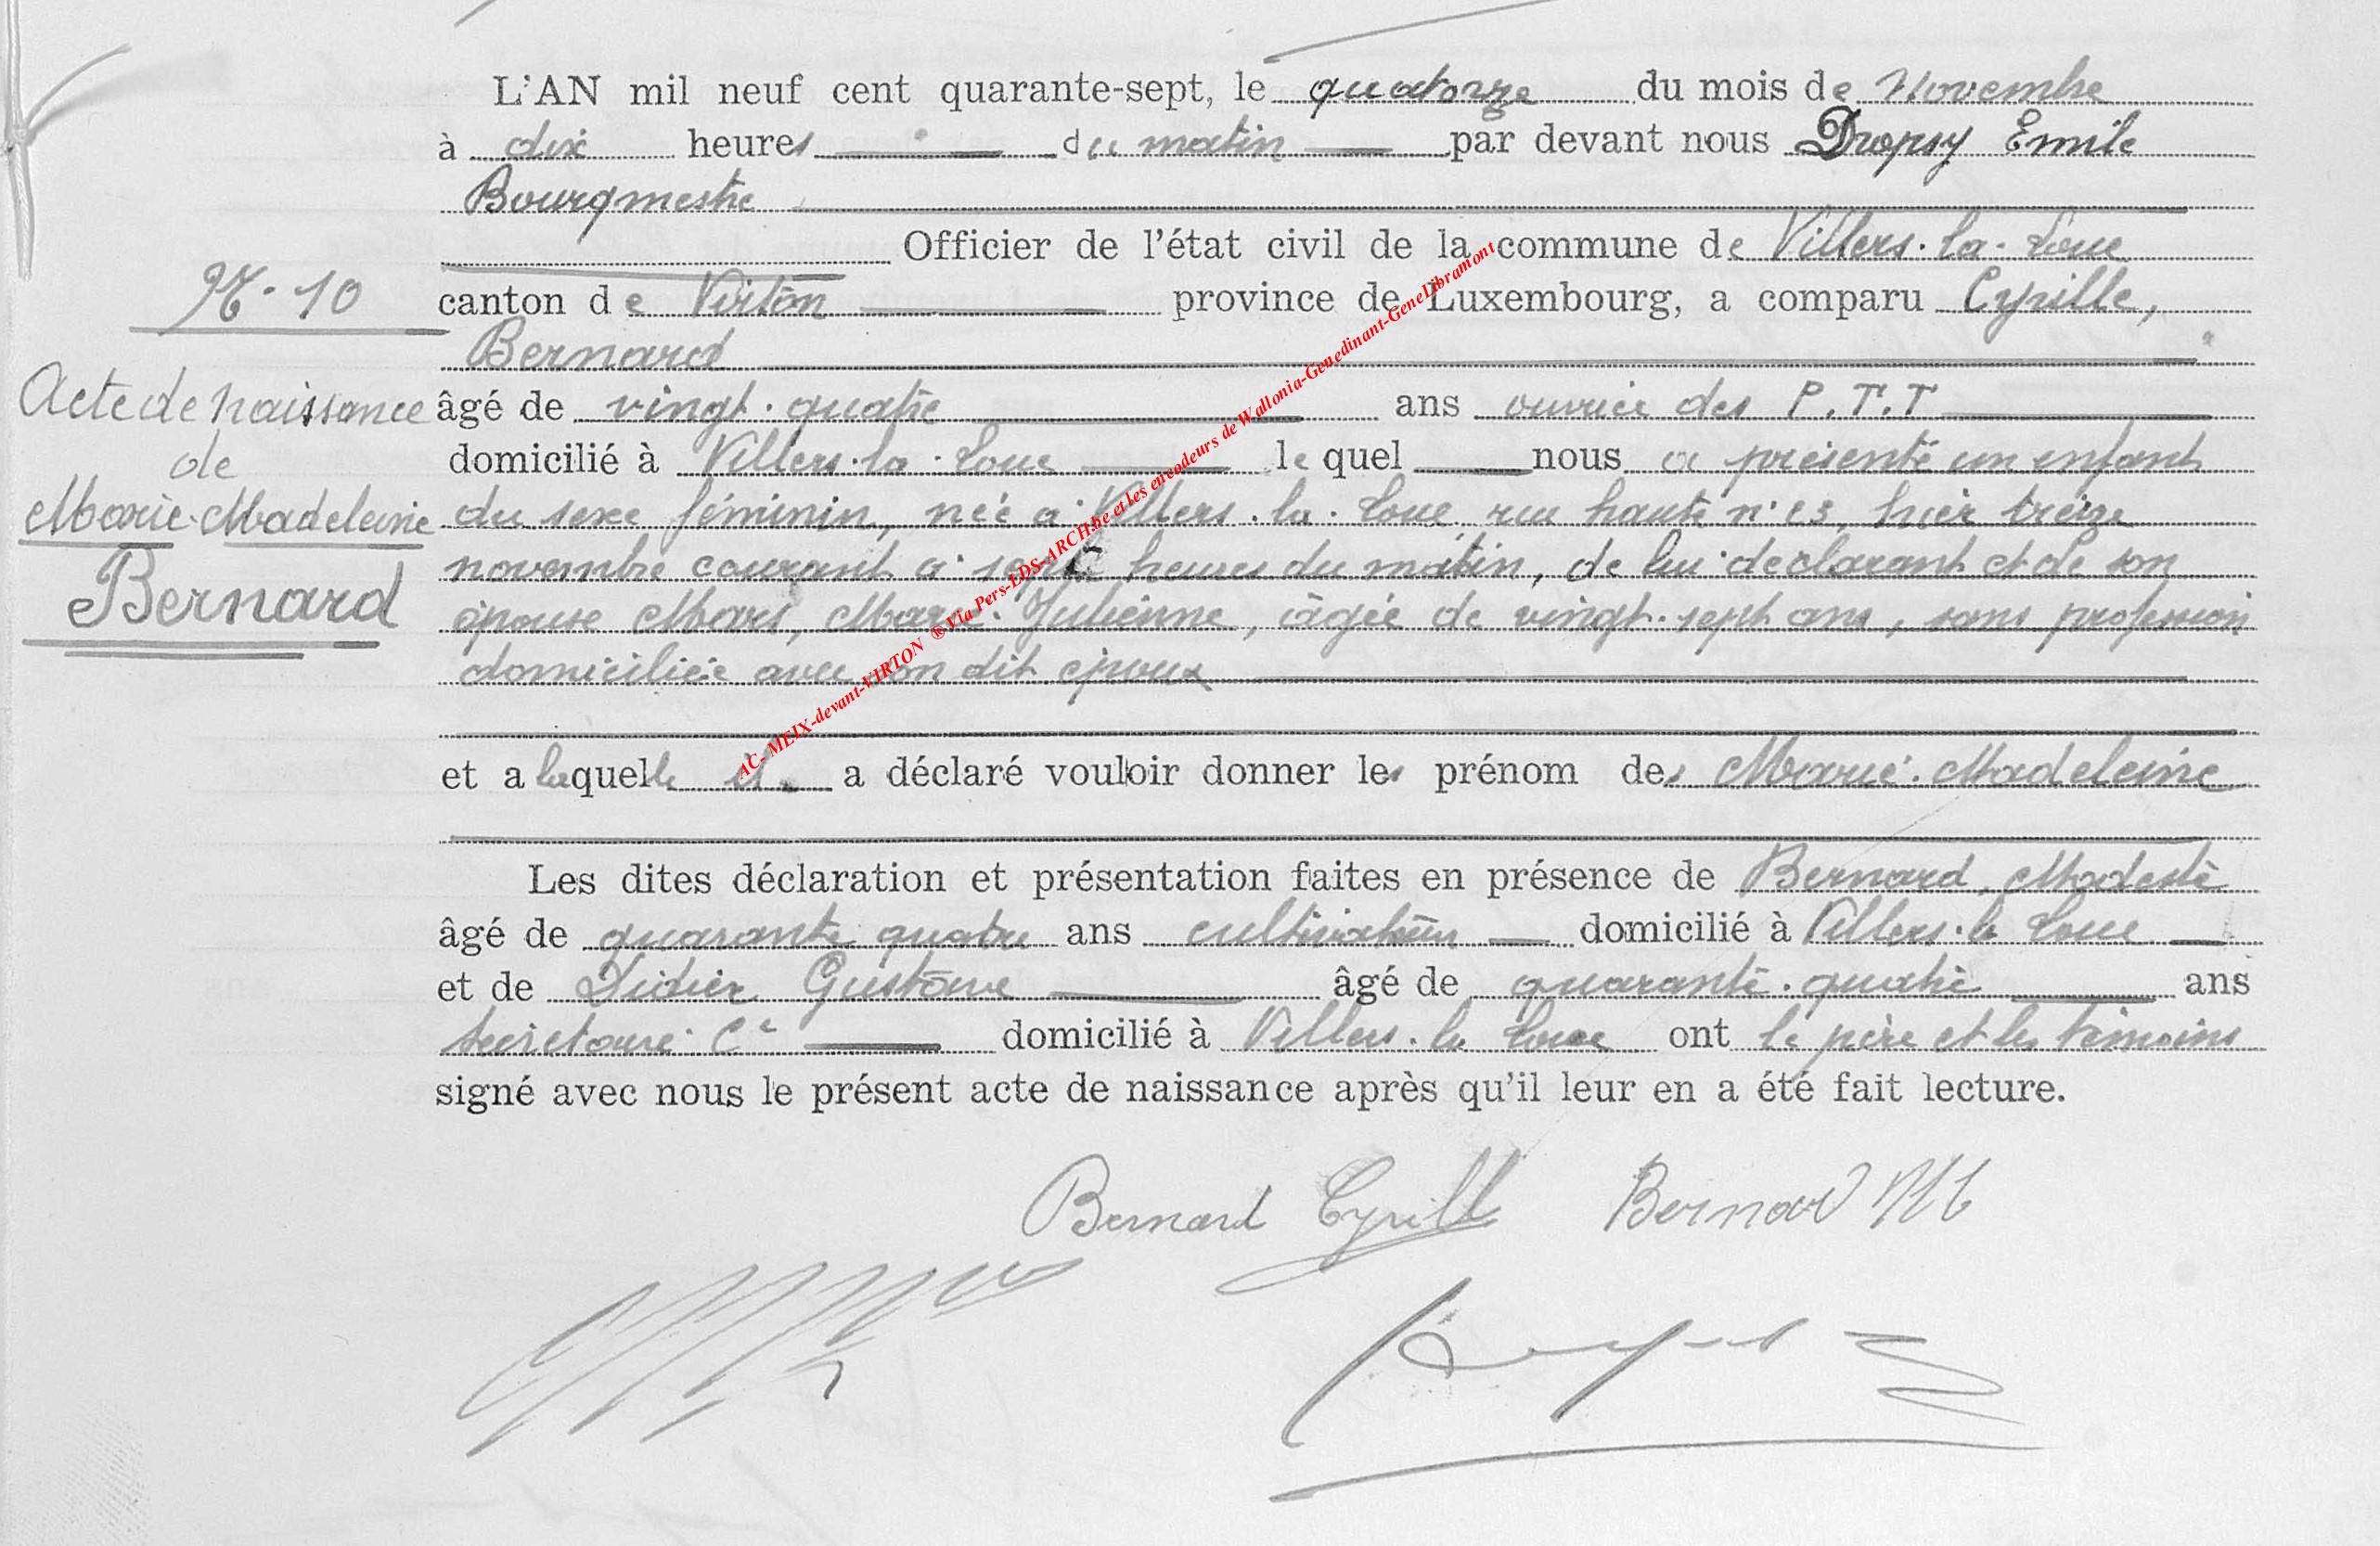 L'AN mil neuf cent quarante-sept, le quatorze du mois de Novembre
à dix heures du matin par devant nous Dropsy Emile
Bourgmestre
Officier de l'état civil de la commune de Villers-la-Loue
canton de Virton province de Luxembourg, a comparu Cyrille,
Bernard
âgé de vingt-quatre ans ouvrier des P.T.T
domicilié à Villers-la-Loue lequel nous a présenté un enfant
du sexe féminin, née à Villers-la-Loue, rue haute n° 23, hier treize
novembre courant à sept heures du matin, de lui déclarant et de son
épouse Mars, Marie-Julienne, âgée de vingt-sept ans, sans profession
domiciliée avec son dit époux
et a laquelle il a déclaré vouloir donner les prénom des Marie-Madeleine
Les dites déclaration et présentation faites en présence de Bernard, Modeste
âgé de quarante quatre ans cultivateur domicilié à Villers-la-Loue
et de Didier Gustave âgé de quarante-quatre ans
Secrétaire Cl domicilié à Villers-la-Loue ont le père et les témoins
signé avec nous le présent acte de naissance après qu'il leur en a été fait lecture.
N°-10
Acte de naissance
de
Marie-Madeleine
Bernard
Bernard Cyrill Bernard
AC- MEIX-devant-VIRTON ® Via Pers-LDS-ARCH.be et les encodeurs de Wallonia-Genedinant-GeneLibramont